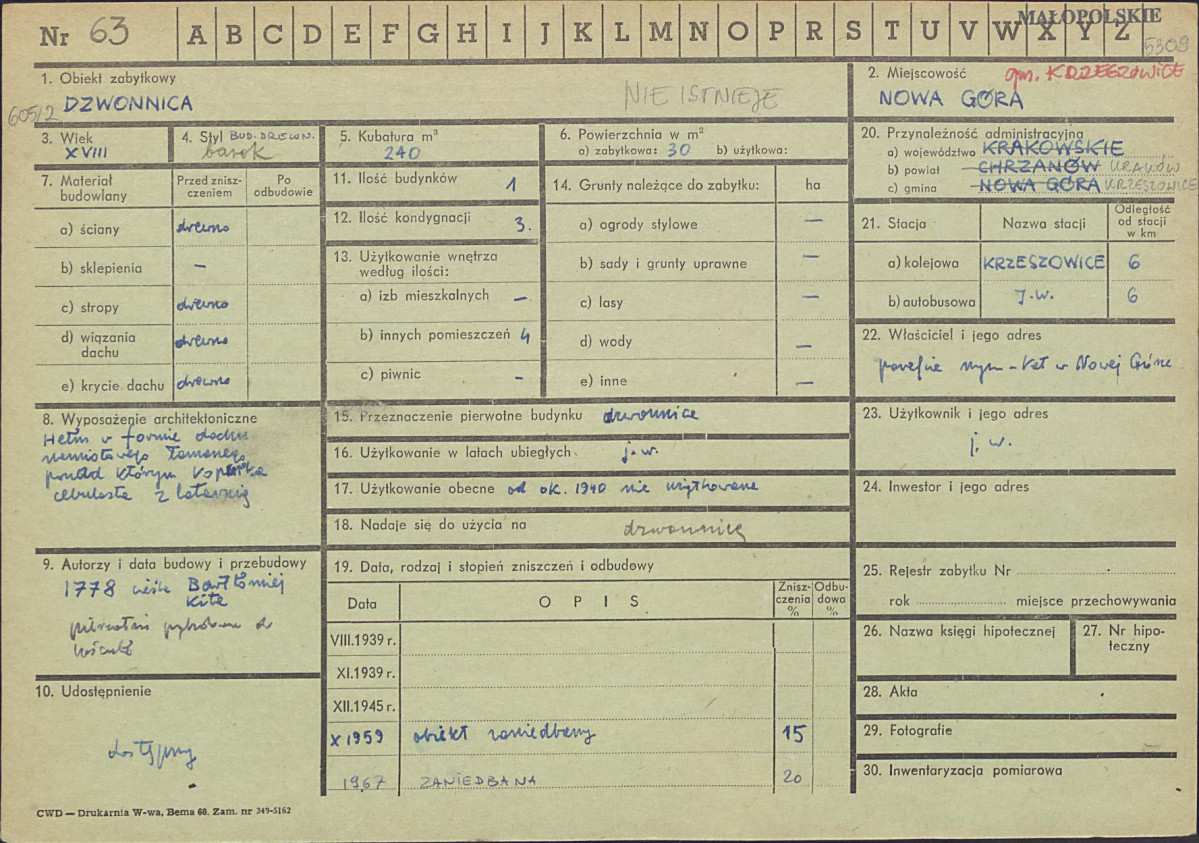 MAŁOPOLSKIE
Nr 63 A B C D E F G H I J K L M N O P R S T U V W X Y Z
5308
1. Obiekt zabytkowy
605/2 DZWONNICA
NIE ISTNIEJE
2. Miejscowość gm. KRZESZOWICE
NOWA GÓRA
3. Wiek
XVIII
4. Styl BUD. DREWN.
barok
5. Kubatura m³
240
6. Powierzchnia w m²
a) zabytkowa: 30 b) użytkowa:
20. Przynależność administracyjna
a) województwo KRAKOWSKIE
b) powiat CHRZANÓW KRAKÓW
c) gmina NOWA GÓRA KRZESZOWICE
7. Materiał budowlany
Przed zniszczeniem
Po odbudowie
a) ściany drewno
b) sklepienia –
c) stropy drewno
d) wiązania dachu drewno
e) krycie dachu drewno
11. Ilość budynków 1
12. Ilość kondygnacji 3.
13. Użytkowanie wnętrza
według ilości:
a) izb mieszkalnych –
b) innych pomieszczeń 4
c) piwnic –
14. Grunty należące do zabytku: ha
a) ogrody stylowe –
b) sady i grunty uprawne –
c) lasy –
d) wody –
e) inne –
21. Stacja Nazwa stacji Odległość od stacji w km
a) kolejowa KRZESZOWICE 6
b) autobusowa J.w. 6
22. Właściciel i jego adres
parafia rzym-kat w Nowej Górze
8. Wyposażenie architektoniczne
Hełm w formie dachu
namiotowego łamanego
ponad którym kopułka
cebulasta z latarnią
15. Przeznaczenie pierwotne budynku dzwonnica
16. Użytkowanie w latach ubiegłych j.w.
17. Użytkowanie obecne od ok. 1940 nie użytkowana
18. Nadaje się do użycia na dzwonnicę
23. Użytkownik i jego adres
j. w.
24. Inwestor i jego adres
9. Autorzy i data budowy i przebudowy
1778 cieśla Bartłomiej
Kita
kościoła
10. Udostępnienie
dostępny
19. Data, rodzaj i stopień zniszczeń i odbudowy
Data OPIS Zniszczenia % Odbudowa %
VIII.1939 r.
XI.1939 r.
XII.1945 r.
X 1959 obiekt zaniedbany 15
1967 ZANIEDBANA 20
25. Rejestr zabytku Nr
rok miejsce przechowywania
26. Nazwa księgi hipotecznej
27. Nr hipoteczny
28. Akta
29. Fotografie
30. Inwentaryzacja pomiarowa
CWD — Drukarnia W-wa, Bema 60. Zam. nr 349-5162